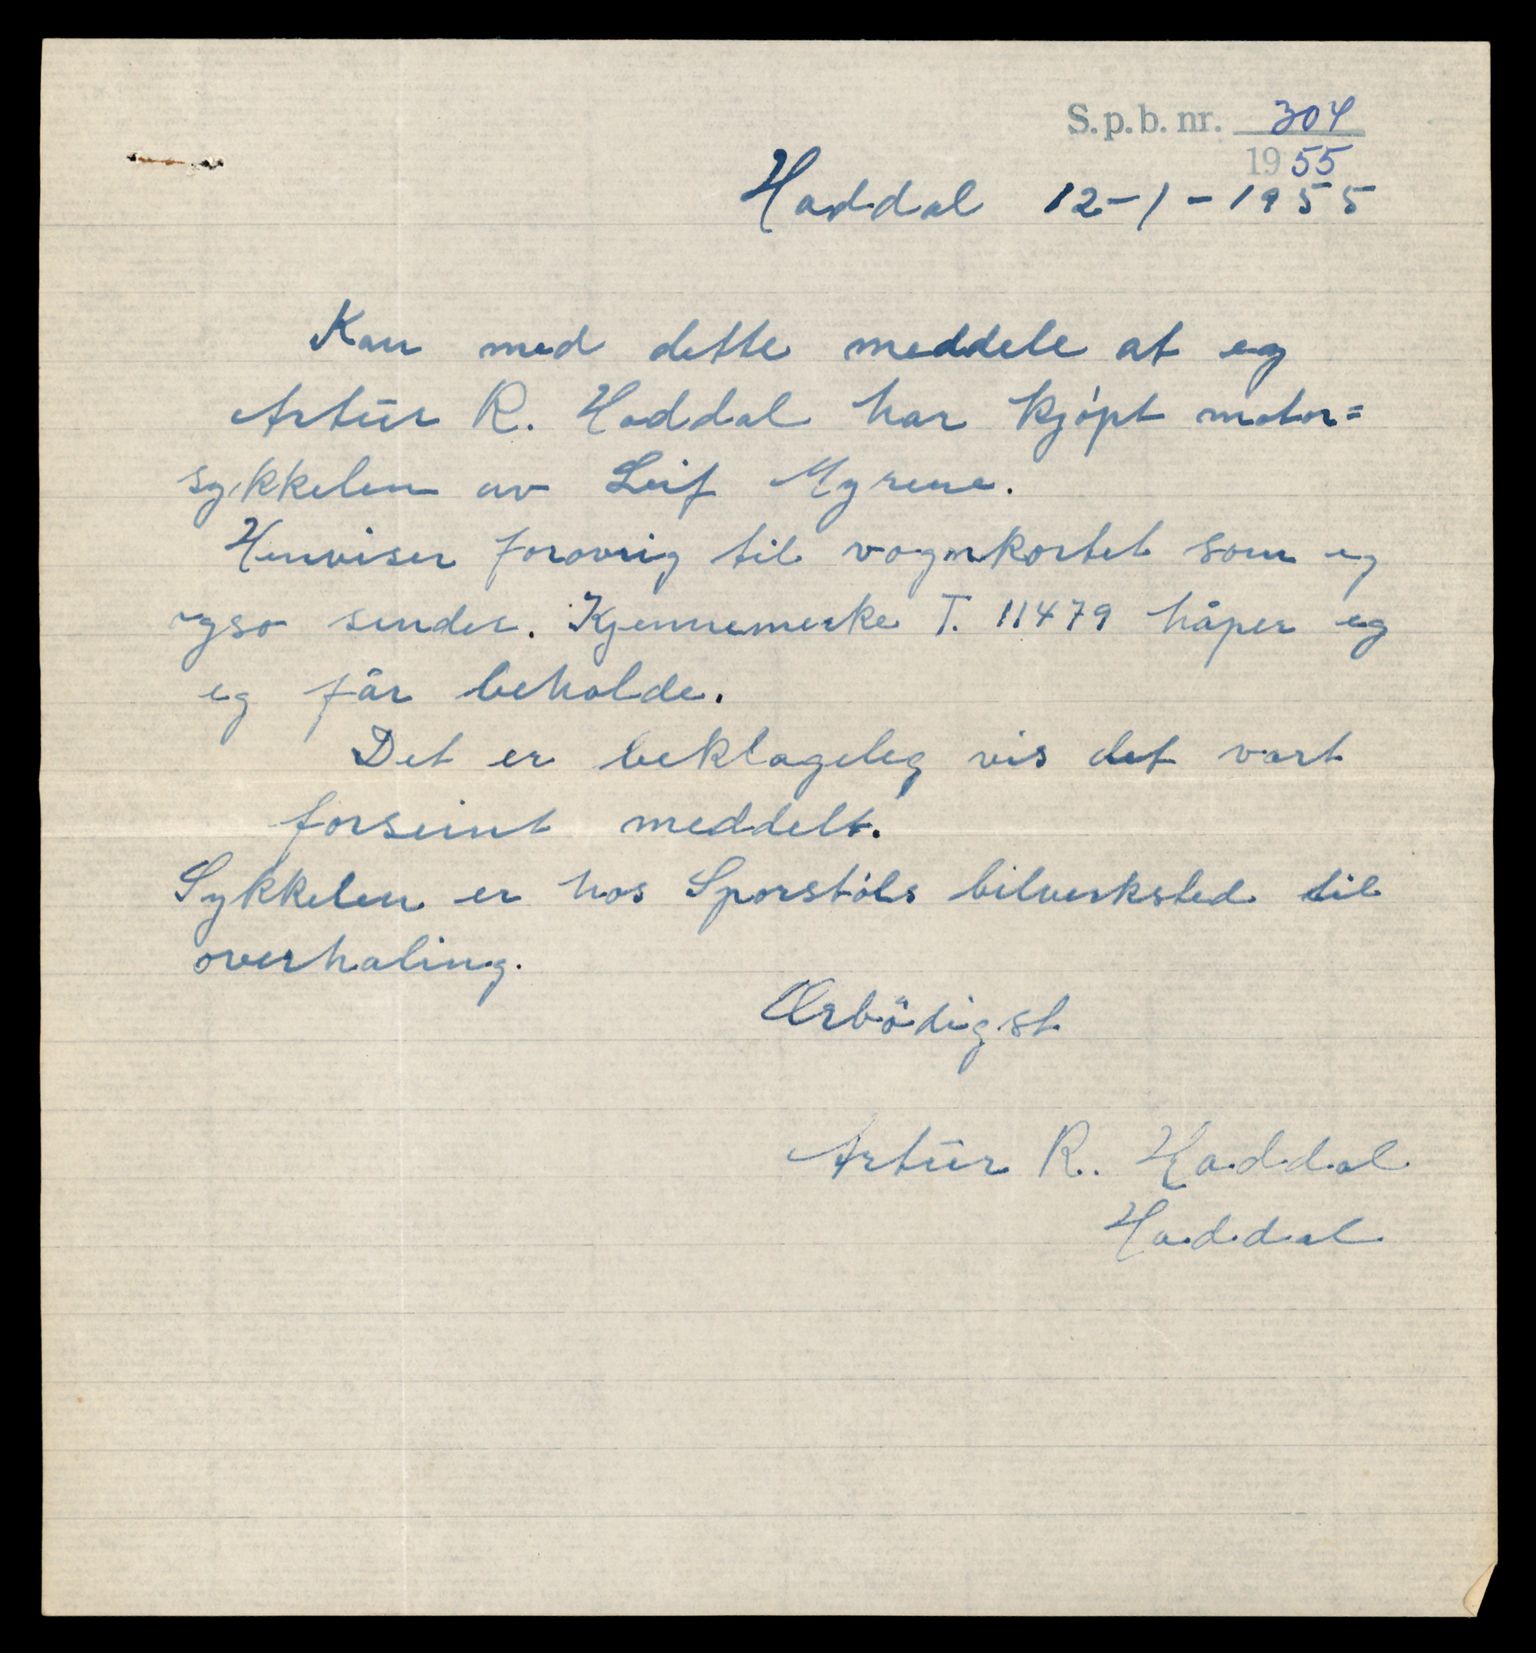 S.p.b. nr. 304
1955
Haddal 12-1-1955
Kan med dette meddele at eg
Artur R. Haddal har kjópt motor=
sykkelen av Leif Myrene.
Henviser forovrig til vognkortet som eg
ogso sender. Kjennemerke T. 11479 håper eg
eg får beholde.
Det er beklageleg vis det vart
forseint meddelt.
Sykkelen er hos Sporstóls bilverksted til
overhaling.
Ærbödigst
Artur R. Haddal
Haddal